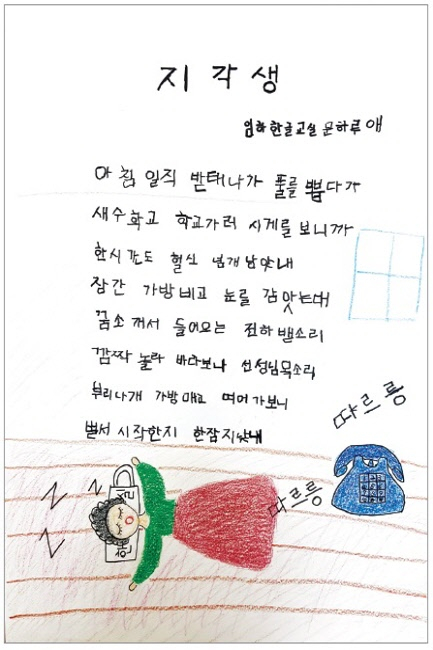 지각생
임하한글교실 문하루애
아침 일직 밭테나가 풀를 뽑다가
새수하고 학교가러 시게를 보니까
한시간도 헐신 넘개 남앗내
잠간 가방 비고 눈를 감앗는대
꿈소개서 들어오는 전하밸소리
깜짝 놀라 바다보니 선성님목소리
부리나개 가방매고 띠어가보니
벌서 시작한지 한잠지낫내
따르릉
따르릉
Z
Z
Z